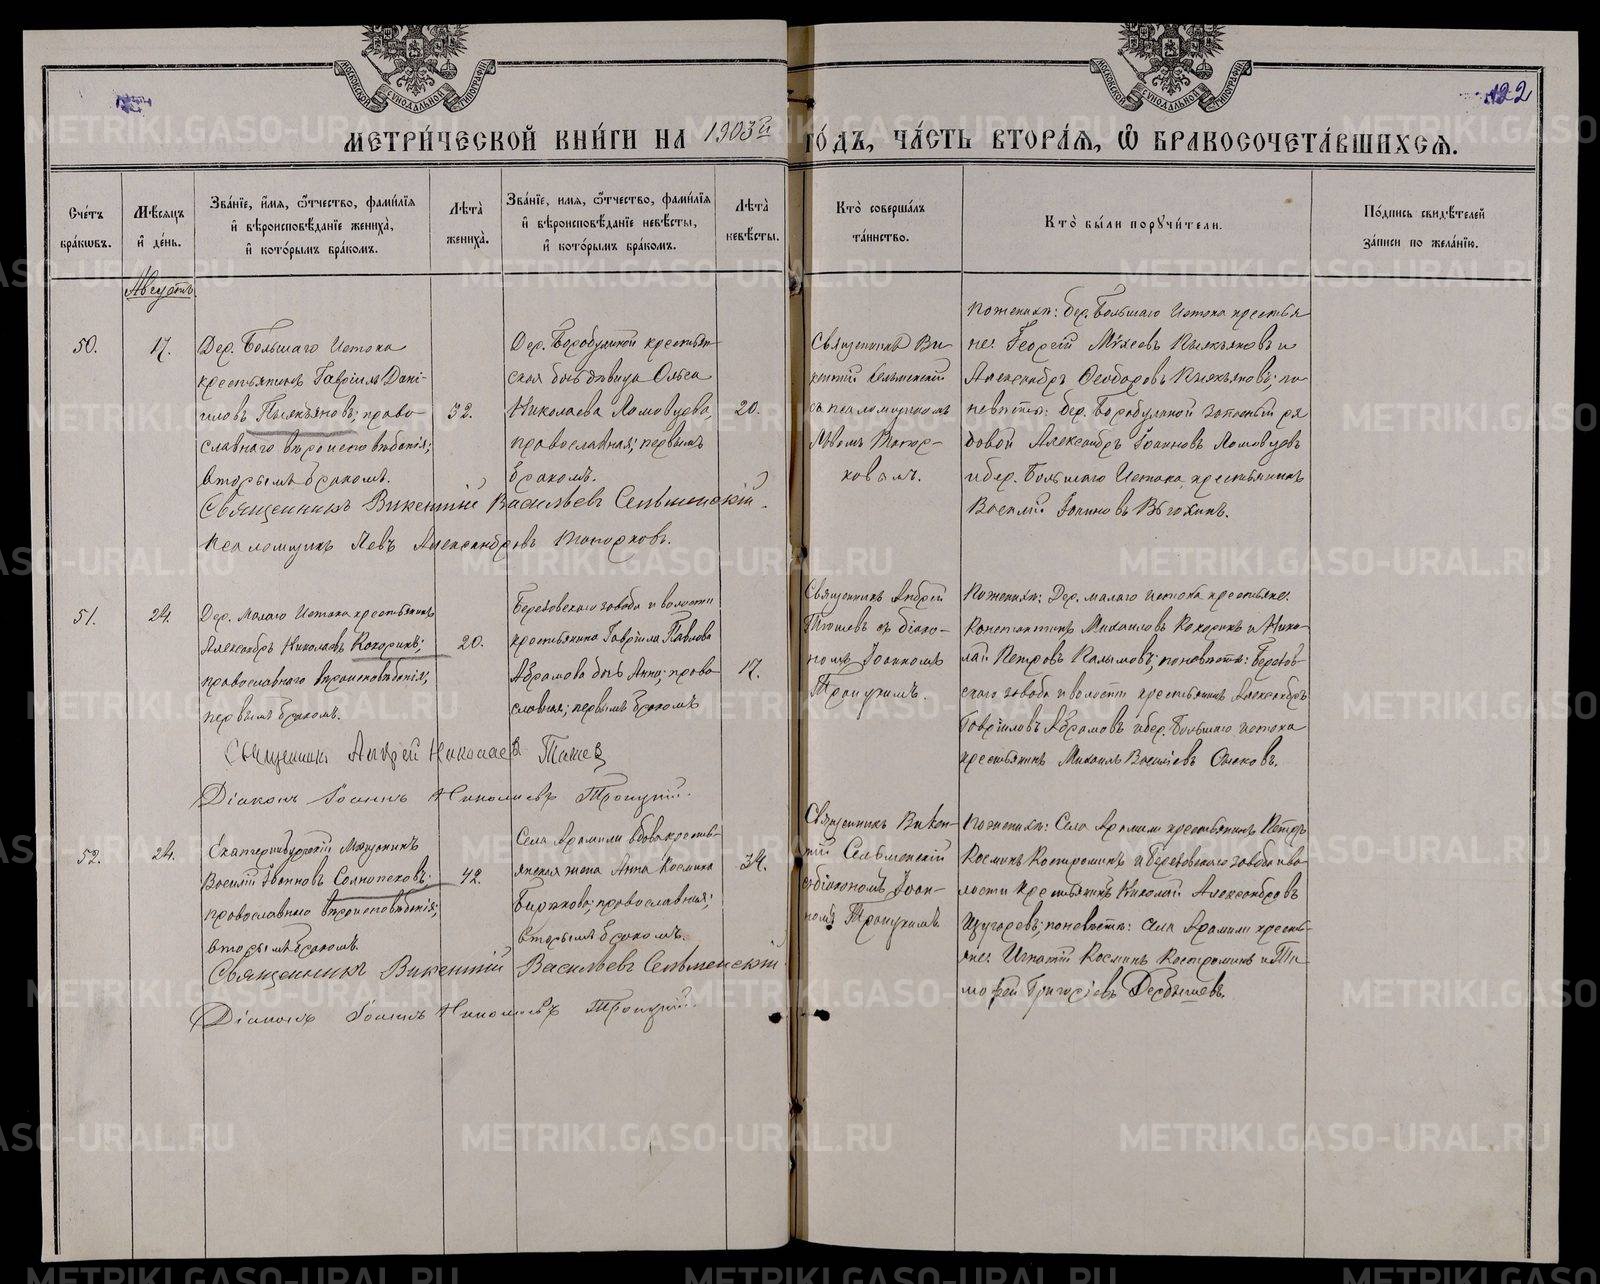 МОСКОВСКОЙ СѴНОДАЛЬНОЙ ТИПОГРАФІИ
МОСКОВСКОЙ СѴНОДАЛЬНОЙ ТИПОГРАФІИ
122
МЕТРИ́ЧЕСКОЙ КНИ́ГИ НА 1903й ГО́ДЪ, ЧА́СТЬ ВТОРА́Ѧ, Ѡ҆ БРАКОСОЧЕТА́ВШИХСѦ.
Сче́тъ бра́кѡвъ.
Мѣ́сѧцъ и҆ де́нь.
Зва́нїе, и҆́мѧ, ѻ҆́тчество, фами́лїѧ и҆ вѣроисповѣ́данїе жениха̀, и҆ кото́рымъ бра́комъ.
Лѣ́та̀ жениха̀.
Зва́нїе, и҆мѧ, ѻ҆́тчество, фами́лїѧ и҆ вѣроисповѣ́данїе невѣ́сты, и҆ кото́рымъ бра́комъ.
Лѣ́та̀ невѣ́сты.
Кто̀ соверша́лъ та́инство.
Кто̀ бы́ли порꙋчи́тели.
По́дпись свидѣ́телей за́писи по жела́нїю.
Августъ
50.
17.
Дер. Большаго Истока
крестьянинъ Гавріилъ Дані-
иловъ Пьянковъ; право-
славнаго вѣроисповѣданія;
вторымъ бракомъ.
32.
Дер. Бородулиной крестьян-
ская дочь дѣвица Ольга
Николаева Ломовцева,
православная; первымъ
бракомъ.
20.
Священникъ Ви-
кентій Сельменскій
съ псаломщикомъ
Львомъ Топор-
ковымъ.
По женихѣ: дер. Большаго Истока крестья
не Георгій
Александръ Ѳеодоровъ
невѣстѣ: дер. Бородулиной запасный ря
довой Александръ Іоанновъ Ломовцевъ
и дер. Большаго Истока крестьянинъ
Василій Іоанновъ
Священникъ Викентій Васильевъ Сельменскій.
Псаломщикъ Левъ Александровъ Топорковъ.
51.
24.
Дер. Малаго Истока крестьянинъ
Александръ Николаевъ Кокоринъ;
православнаго вѣроисповѣданія;
первымъ бракомъ.
20.
Березовскаго завода и волости
крестьянина Гавріила Павлова
Абрамова дочь Анна; право
славная; первымъ бракомъ
17.
Священникъ Андрей
съ діако-
номъ Іоанномъ
Троицкимъ.
По женихѣ: Дер. малаго истока крестьяне:
Константинъ Михаиловъ Кокоринъ и Нико-
лай Петровъ по невѣстѣ: Березов-
скаго завода и волости крестьянинъ Александръ
Гавріиловъ Абрамовъ и дер. Большаго истока
крестьянинъ Михаилъ Василіевъ
Священникъ Андрей Николаевъ
Діаконъ Іоаннъ Николаевъ Троицкій.
52.
24.
Екатеринбургскій Мѣщанинъ
Василій Іоанновъ Солнопековъ;
православнаго вѣроисповѣданія;
вторымъ бракомъ.
42.
Села Арамили вдова крестья-
янская жена Анна Космина
православная;
вторымъ бракомъ.
34.
Священникъ Викен-
тій Сельменскій
съ діакономъ Іоан-
номъ Троицкимъ
По женихѣ: Села Арамили крестьянинъ Петръ
Косминъ Костроминъ и Березовскаго завода и во-
лости крестьянинъ Николай Александровъ
по невѣстѣ: Села Арамили кресть-
яне: Игнатій Косминъ Костроминъ и Ти-
мофей Григоріевъ Дербышевъ.
Священникъ Викентій Васильевъ Сельменскій
Діаконъ Іоаннъ Николаевъ Троицкій.
METRIKI.GASO-URAL.RU